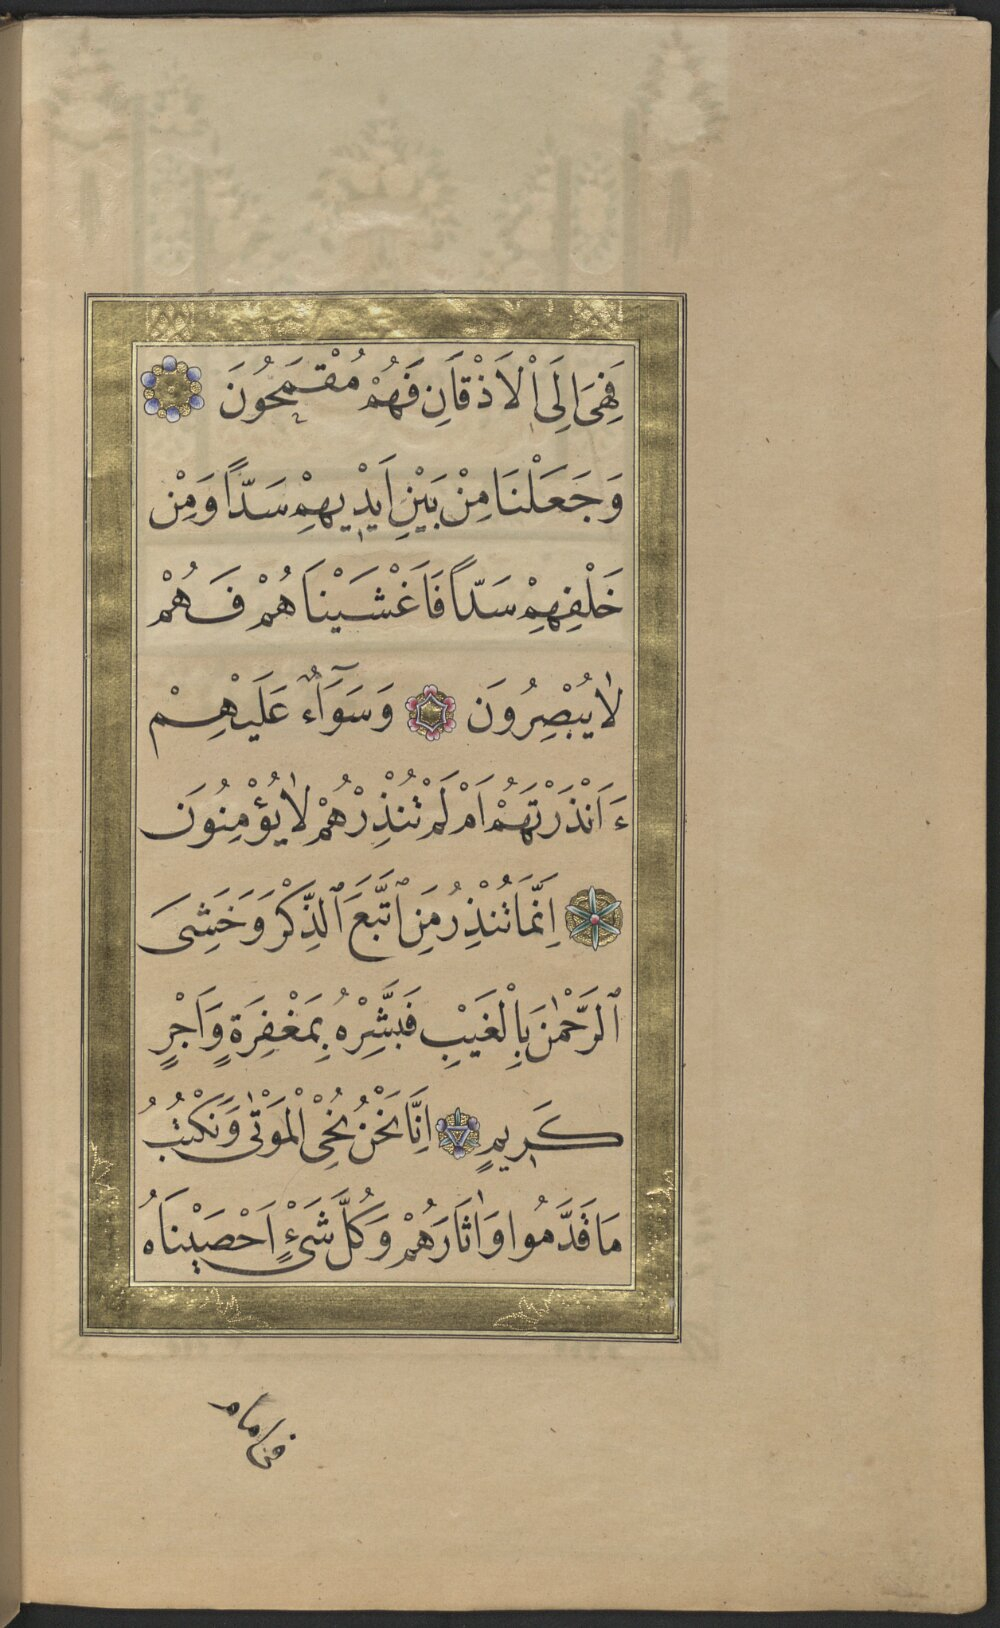 فَهِىَ اِلَى اْلاَذْقَانِ فَهُمْ مُقْمَحُونَ
وَجَعَلْنَا مِنْ بَيْنِ اَيْدِيهِمْ سَدًّا وَمِنْ
خَلْفِهِمْ سَدًّا فَاَغْشَيْنَاهُمْ فَهُمْ
لاٰيُبْصِرُونَ وَسَوَٓاءٌ عَلَيْهِمْ
ءَاَنْذَرْتَهُمْ اَمْ لَمْ تُنْذِرْهُمْ لاٰيُؤْمِنُونَ
اِنَّمَا تُنْذِرُ مَنِ ٱتَّبَعَ ٱلذِّكْرَ وَخَشِىَ
ٱلرَّحْمٰنَ بِاْلغَيْبِ فَبَشِّرْهُ بِمَغْفِرَةٍ وَاَجْرٍ
كَرِيمٍ اِنَّا نَحْنُ نُحْيِى الْمَوْتٰى وَنَكْتُبُ
مَاقَدَّمُوا وَاٰثَارَهُمْ وَكُلَّ شَىْءٍ اَحْصَيْنَاهُ